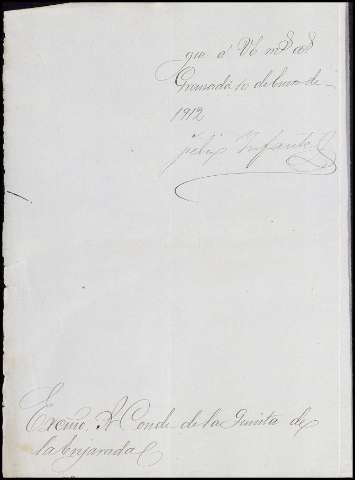 que á V. E. m.s a.s
Granada 10 de Enero de
1912
Félix Infante
Excmo. Sr Conde de la Quinta de
la Enjarada